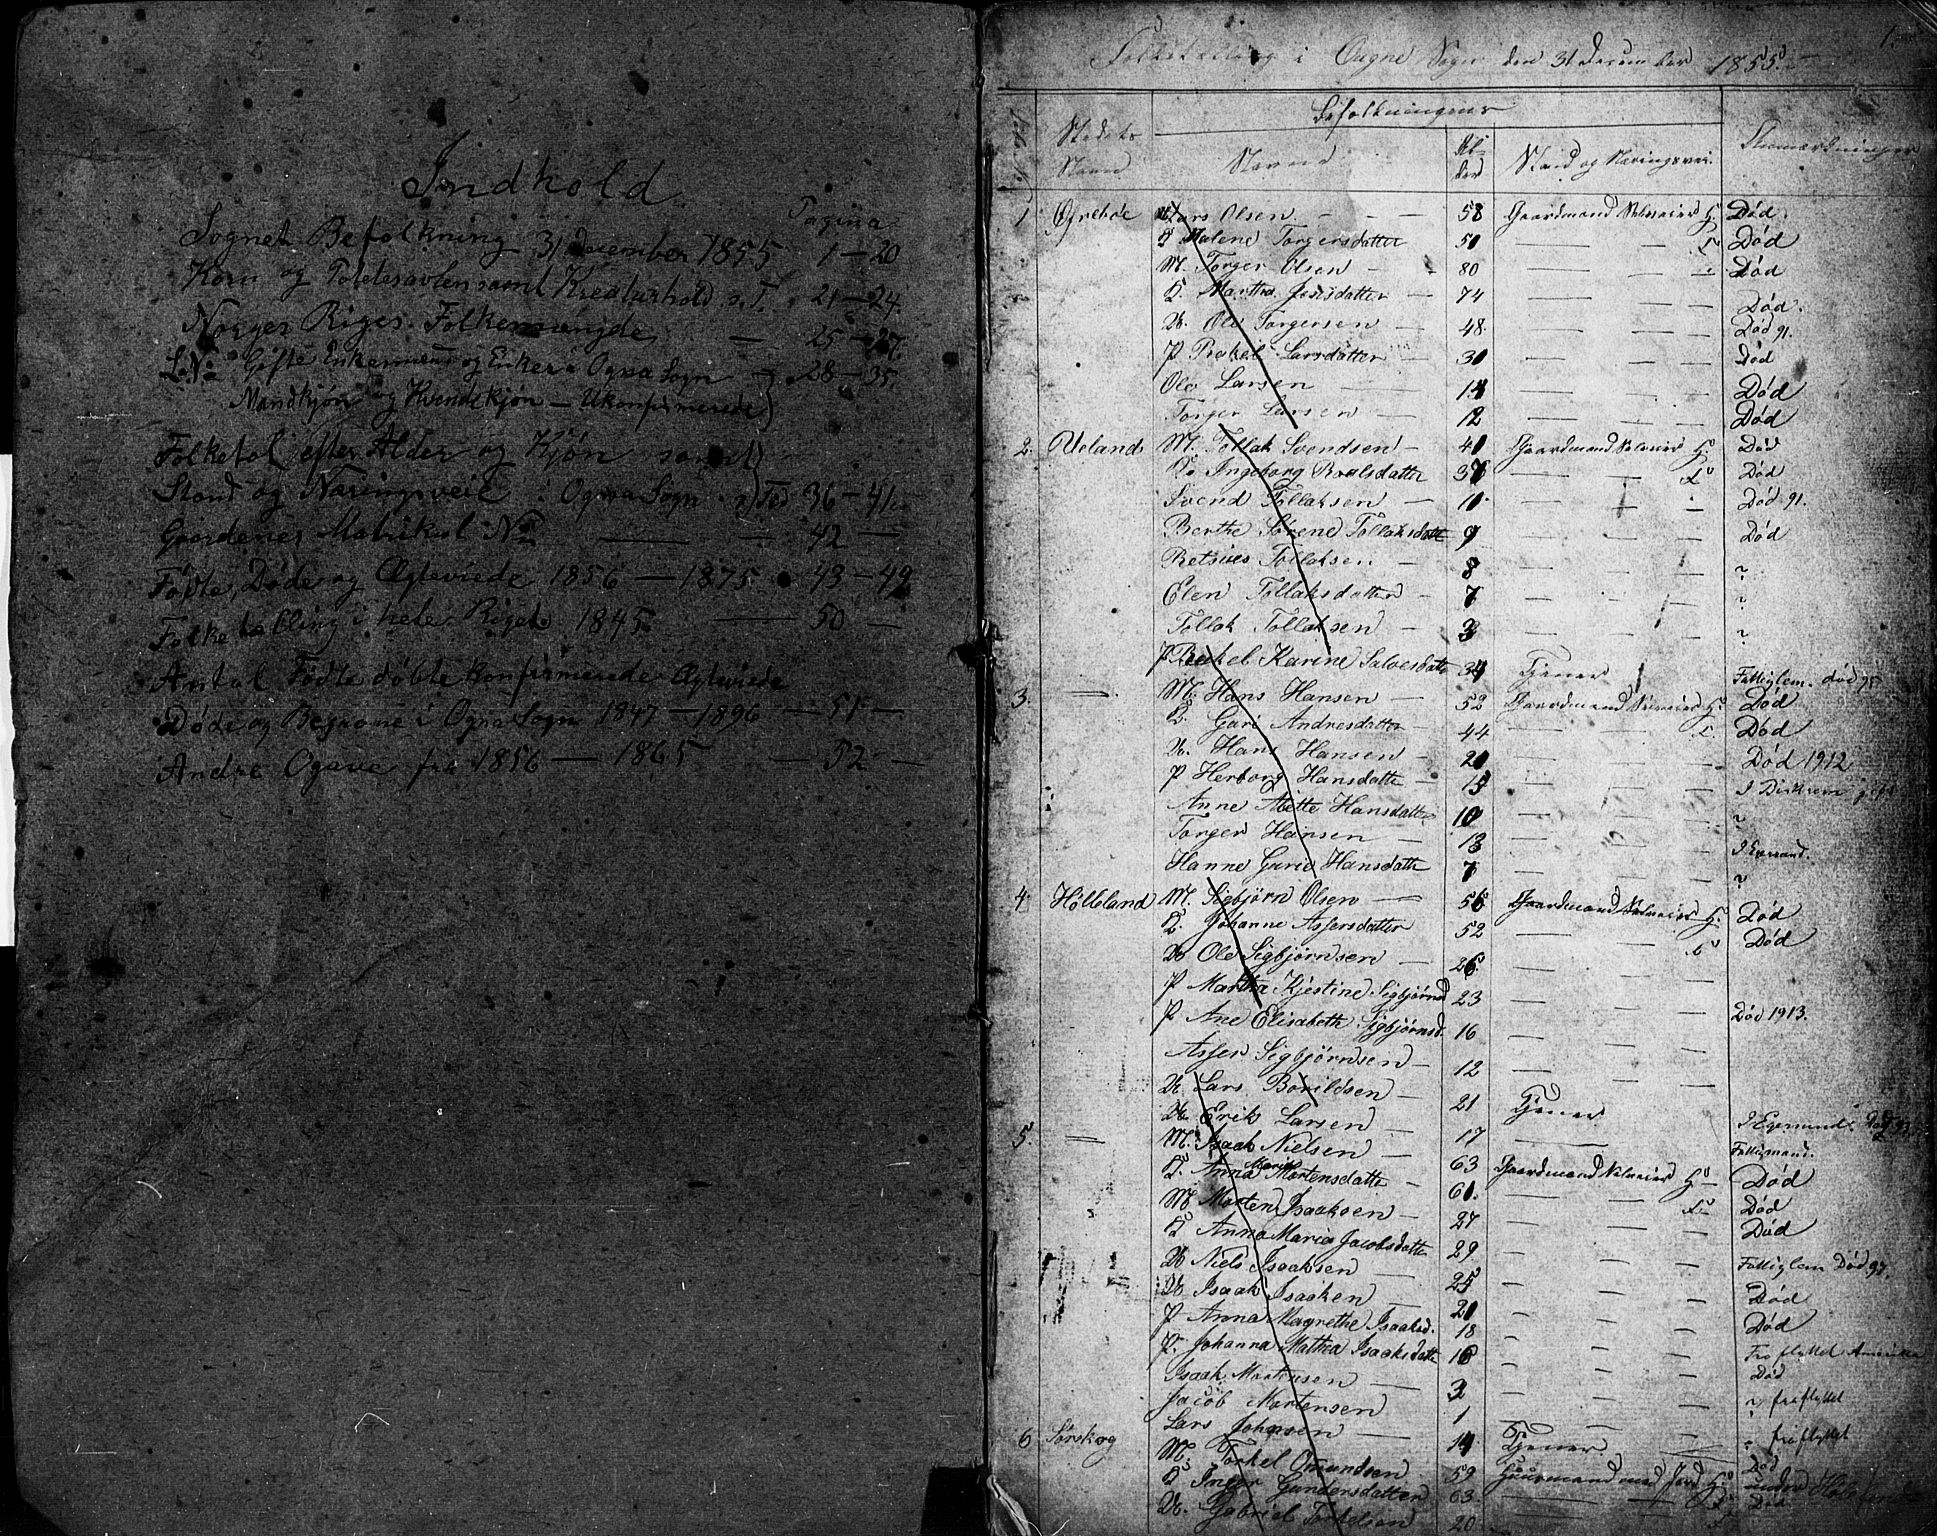 Indhold
Pagina
Sognets Befolkning 31 december 1855 1 — 20
Korn og Potetesavlen samt Kreaturhold s. T. 21 — 24.
Norges Riges Folkemængde — 25 — 27.
Gifte Enkemænd og Enker i Ogna Sogn — 28 — 35.
Mandkjøn og Kvindekjøn — Ukonfirmerede
Folketal efter Alder og Kjøn samt
Stand og Næringsveie i Ogna Sogn 36 — 41
Gaardenes Matrikul No — — 42 —
Fødte, Døde og Ægteviede 1856 — 1875 43 — 49
Folketelling i hele Riget 1845 — 50 —
Antal Fødte døbte Konfirmerede Ægteviede
Døde og Begravne i Ogna Sogn 1847 — 1896 — 51 —
Andre Ogave fra 1856 — 1865 — 52 —
1.
Folketelling i Ougne Sogn den 31 December 1855.
Befolkningens
Stedets Navn
Navne
Alder
Stand og Næringsvei.
Anmærkninger
1 Øgrehoe Lars Olsen 58 Gaardmand Selveier G. Død.
Malene Torgersdatter 50 — Død
M. Torger Olsen 80 — Død
Martha 74 — Død.
U. Ole Torgersen 48. — Død 91.
P Rakel Larsdatter 30 — Død
Ole Larsen 14 — Død
Torger Larsen 12 — Død
2 Ueland M. Tollak Svendsen 40 Gaardmand Selveier G. Død
Ingeborg 37 — Død
Svend Tollaksen 11 — Død 91.
Berthe Sørene Tollaksdatte 9 — Død
Tollaksen 8 — ?
Elen Tollaksdatter 7 — ?
Tollak Tollaksen 3 — ?
P Rakel Karine Salvesdatte 34 Tjener Fattiglem. død 95
3. — M. Hans Hansen 52 Gaardmand Selveier G. Død
Guri Andresdatter 44 — Død
U. Hans Hansen 20 — Død 1912
P Herborg Hansdatte 15 —
Anne Mette Hansdatter 10 — ?
Torger Hansen 13 —
Hanne Gurie Hansdatte 7 — ?
4. Hølleland M. Sigbjørn Olsen 56 Gaardmand Selveier G. Død
Johanne Assersdatter 52 — Død
U Ole Sigbjørnsen 26 —
P Martha Kjestine Sigbjørnsd 23 —
P Ane Elisabeth Sigbjørnsd. 16 — Død 1913.
Asser Sigbjørnsen 12 —
U. Lars Borildsen 21 Tjener
U. Erik Larsen 17 —
5. — M. Isaak Nielsen 63 Gaardmand Selveier G Død
Anna Marie Mortensdatte 60. — Død
M Morten Isaaksen 27 — Død
Anna Maria Jacobsdatte 29 —
U Niels Isaaksen 25 — Fattiglem Død 97.
U Isaak Isaaksen 20 — Død
P Anna Magrethe Isaaksd. 18 — Død
P. Johanna Mathea Isaaksdatte 16 — Fraflyttet Amerika
Isaak Mortensen 3 — Død
Jacob Mortensen 1 — ? fraflyttet
Lars Johnsen 14 Tjener fraflyttet
6 Sørskog M. Torkel Omundsen 59 Huusmand med Jord Død
Inger Gundersdatter 63. —
U. Gabriel Torkelsen 20 —